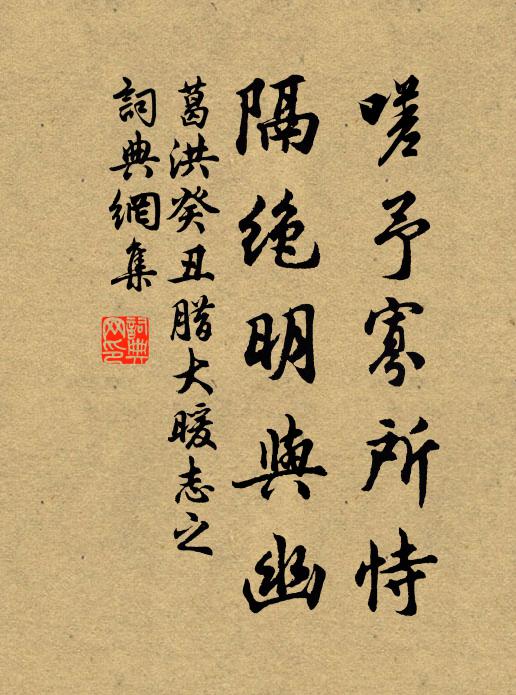 嗟予寡所恃
隔絶明與幽
葛洪癸丑腊大暖志之
詞典網集
詞典網印